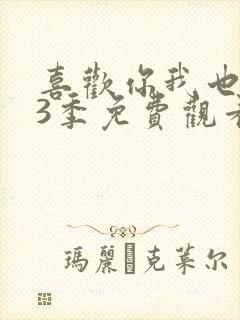 喜歡你我也
3季免費觀看
瑪麗·克萊尔